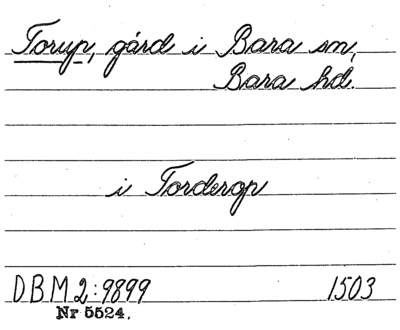 Torup, gård i Bara sn,
Bara hd.
i Torderop
DBM 2:9899 1503
Nr 5524.